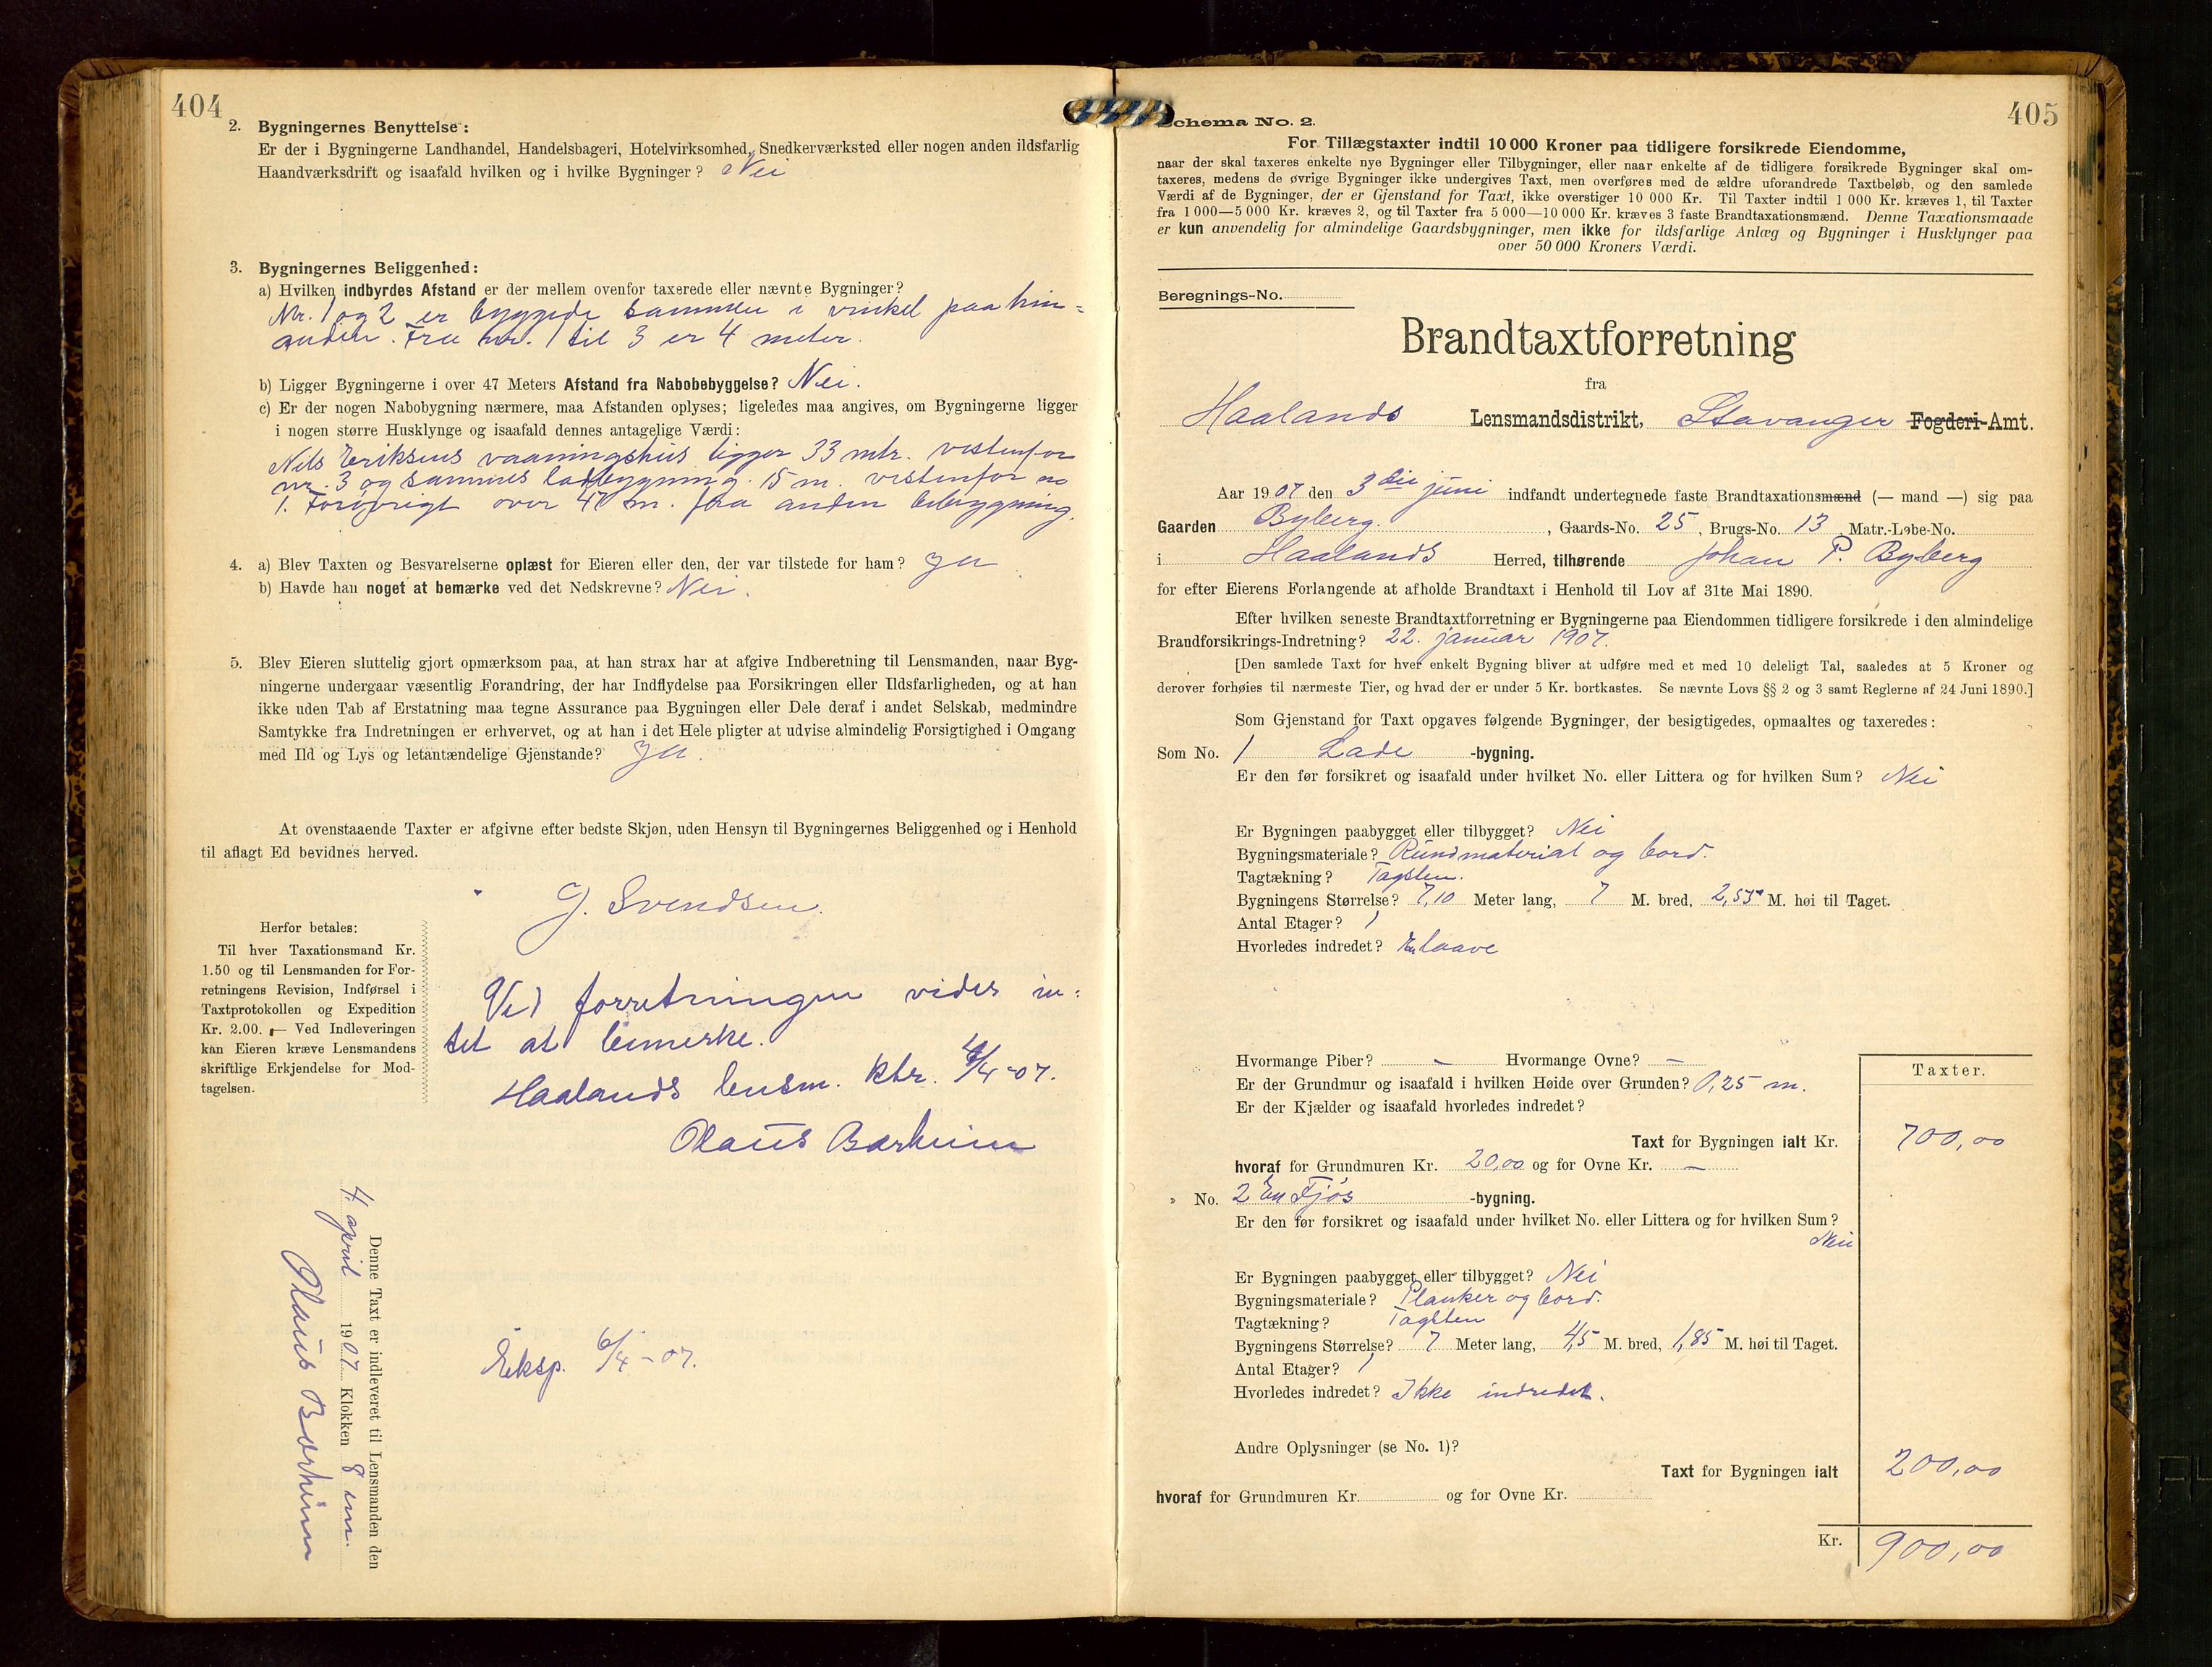 404
2. Bygningernes Benyttelse:
Er der i Bygningerne Landhandel, Handelsbageri, Hotelvirksomhed, Snedkerværksted eller nogen anden ildsfarlig
Haandværksdrift og isaafald hvilken og i hvilke Bygninger? Nei
3. Bygningernes Beliggenhed:
a) Hvilken indbyrdes Afstand er der mellem ovenfor taxerede eller nævnte Bygninger?
Nr. 1 og 2 er byggede sammen i vinkel paa hin=
anden. Fra nr. 1 til 3 er 4 meter.
b) Ligger Bygningerne i over 47 Meters Afstand fra Nabobebyggelse? Nei.
c) Er der nogen Nabobygning nærmere, maa Afstanden oplyses; ligeledes maa angives, om Bygningerne ligger
i nogen større Husklynge og isaafald dennes antagelige Værdi:
Nils Eriksens vaaningshus ligger 33 mtr. vestenfor
nr. 3 og sammes ladbygning 15 m. vestenfor no
1. Forøvrigt over 47 m. fra anden bebyggning.
4. a) Blev Taxten og Besvarelserne oplæst for Eieren eller den, der var tilstede for ham? Ja
b) Havde han noget at bemærke ved det Nedskrevne? Nei.
5. Blev Eieren sluttelig gjort opmærksom paa, at han strax har at afgive Indberetning til Lensmanden, naar Byg-
ningerne undergaar væsentlig Forandring, der har Indflydelse paa Forsikringen eller Ildsfarligheden, og at han
ikke uden Tab af Erstatning maa tegne Assurance paa Bygningen eller Dele deraf i andet Selskab, medmindre
Samtykke fra Indretningen er erhvervet, og at han i det Hele pligter at udvise almindelig Forsigtighed i Omgang
med Ild og Lys og letantændelige Gjenstande? Ja.
At ovenstaaende Taxter er afgivne efter bedste Skjøn, uden Hensyn til Bygningernes Beliggenhed og i Henhold
til aflagt Ed bevidnes herved.
J. Svendsen.
Herfor betales:
Til hver Taxationsmand Kr.
1.50 og til Lensmanden for For-
retningens Revision, Indførsel i
Taxtprotokollen og Expedition
Kr. 2.00. — Ved Indleveringen
kan Eieren kræve Lensmandens
skriftlige Erkjendelse for Mod-
tagelsen.
Ved forretningen vides in=
tet at bemerke.
Haalands lensm. ktr. 4/4-07.
Olaus Barheim
Denne Taxt er indleveret til Lensmanden den
4. april 1907 Klokken 8 em.
Olaus Barheim
Eksp. 6/4-07.
405
Schema No. 2.
For Tillægstaxter indtil 10 000 Kroner paa tidligere forsikrede Eiendomme,
naar der skal taxeres enkelte nye Bygninger eller Tilbygninger, eller naar enkelte af de tidligere forsikrede Bygninger skal om-
taxeres, medens de øvrige Bygninger ikke undergives Taxt, men overføres med de ældre uforandrede Taxtbeløb, og den samlede
Værdi af de Bygninger, der er Gjenstand for Taxt, ikke overstiger 10 000 Kr. Til Taxter indtil 1 000 Kr. kræves 1, til Taxter
fra 1 000—5 000 Kr. kræves 2, og til Taxter fra 5 000—10 000 Kr. kræves 3 faste Brandtaxationsmænd. Denne Taxationsmaade
er kun anvendelig for almindelige Gaardsbygninger, men ikke for ildsfarlige Anlæg og Bygninger i Husklynger paa
over 50 000 Kroners Værdi.
Beregnings-No.
Brandtaxtforretning
fra
Haalands Lensmandsdistrikt, Stavanger Fogderi-Amt.
Aar 1907 den 3die juni indfandt undertegnede faste Brandtaxationsmænd (— mand —) sig paa
Gaarden Byberg. , Gaards-No. 25, Brugs-No. 13 Matr.-Løbe-No.
i Haalands Herred, tilhørende Johan P. Byberg
for efter Eierens Forlangende at afholde Brandtaxt i Henhold til Lov af 31te Mai 1890.
Efter hvilken seneste Brandtaxtforretning er Bygningerne paa Eiendommen tidligere forsikrede i den almindelige
Brandforsikrings-Indretning? 22. januar 1907.
[Den samlede Taxt for hver enkelt Bygning bliver at udføre med et med 10 deleligt Tal, saaledes at 5 Kroner og
derover forhøies til nærmeste Tier, og hvad der er under 5 Kr. bortkastes. Se nævnte Lovs §§ 2 og 3 samt Reglerne af 24 Juni 1890.]
Som Gjenstand for Taxt opgaves følgende Bygninger, der besigtigedes, opmaaltes og taxeredes:
Som No. 1 Lade -bygning.
Er den før forsikret og isaafald under hvilket No. eller Littera og for hvilken Sum? Nei
Er Bygningen paabygget eller tilbygget? Nei
Bygningsmateriale? Rundmaterial og bord.
Tagtækning? Tagsten.
Bygningens Størrelse? 7,10 Meter lang, 7 M. bred, 2,55 M. høi til Taget.
Antal Etager? 1
Hvorledes indredet? En laave
Hvormange Piber? — Hvormange Ovne? —
Er der Grundmur og isaafald i hvilken Høide over Grunden? 0,25 m.
Er der Kjælder og isaafald hvorledes indredet?
Taxter.
Taxt for Bygningen ialt Kr. 700,00
hvoraf for Grundmuren Kr. 20,00 og for Ovne Kr. —
» No. 2 En Fjøs -bygning.
Er den før forsikret og isaafald under hvilket No. eller Littera og for hvilken Sum?
Nei
Er Bygningen paabygget eller tilbygget? Nei
Bygningsmateriale? Planker og bord.
Tagtækning? Tagsten
Bygningens Størrelse? 7 Meter lang, 4,5 M. bred, 1,85 M. høi til Taget.
Antal Etager? 1
Hvorledes indredet? Ikke indredet.
Andre Oplysninger (se No. 1)?
Taxt for Bygningen ialt 200,00
hvoraf for Grundmuren Kr. og for Ovne Kr.
Kr. 900,00